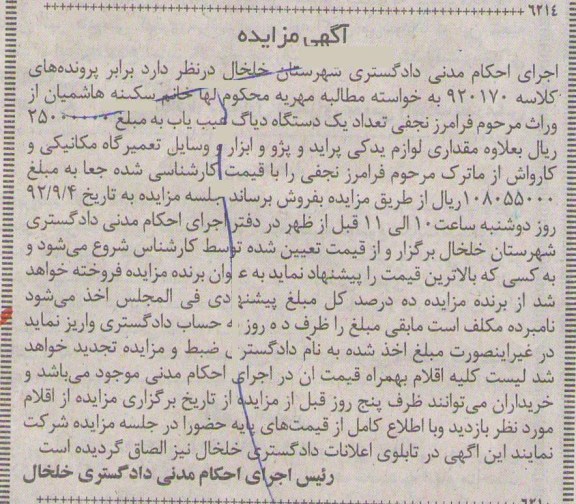 ۶۲۱۴
آگهی مزایده
اجرای احکام مدنی دادگستری شهرستان خلخال درنظر دارد برابر پرونده‌های
کلاسه ۹۲۰۱۷۰ به خواسته مطالبه مهریه محکوم لها خانم سکینه هاشمیان از
وراث مرحوم فرامرز نجفی تعداد یک دستگاه دیاگ عیب یاب به مبلغ
ریال بعلاوه مقداری لوازم یدکی پراید و پژو و ابزار و وسایل تعمیرگاه مکانیکی و
کارواش از ماترک مرحوم فرامرز نجفی را با قیمت کارشناسی شده جعا به مبلغ
۱۰۸۰۵۵۰۰۰ریال از طریق مزایده بفروش برساند جلسه مزایده به تاریخ ۹۲/۹/۴
روز دوشنبه ساعت۱۰ الی ۱۱ قبل از ظهر در دفتر اجرای احکام مدنی دادگستری
شهرستان خلخال برگزار و از قیمت تعیین شده توسط کارشناس شروع می‌شود و
به کسی که بالاترین قیمت را پیشنهاد نماید به عنوان برنده مزایده فروخته خواهد
شد از برنده مزایده ده درصد کل مبلغ پیشنهادی فی المجلس اخذ می‌شود
نامبرده مکلف است مابقی مبلغ را ظرف ده روز به حساب دادگستری واریز نماید
در غیراینصورت مبلغ اخذ شده به نام دادگستری ضبط و مزایده تجدید خواهد
شد لیست کلیه اقلام بهمراه قیمت ان در اجرای احکام مدنی موجود می‌باشد و
خریداران می‌توانند ظرف پنج روز قبل از مزایده از تاریخ برگزاری مزایده از اقلام
مورد نظر بازدید وبا اطلاع کامل از قیمت‌های پایه حضورا در جلسه مزایده شرکت
نمایند این اگهی در تابلوی اعلانات دادگستری خلخال نیز الصاق گردیده است
رئیس اجرای احکام مدنی دادگستری خلخال